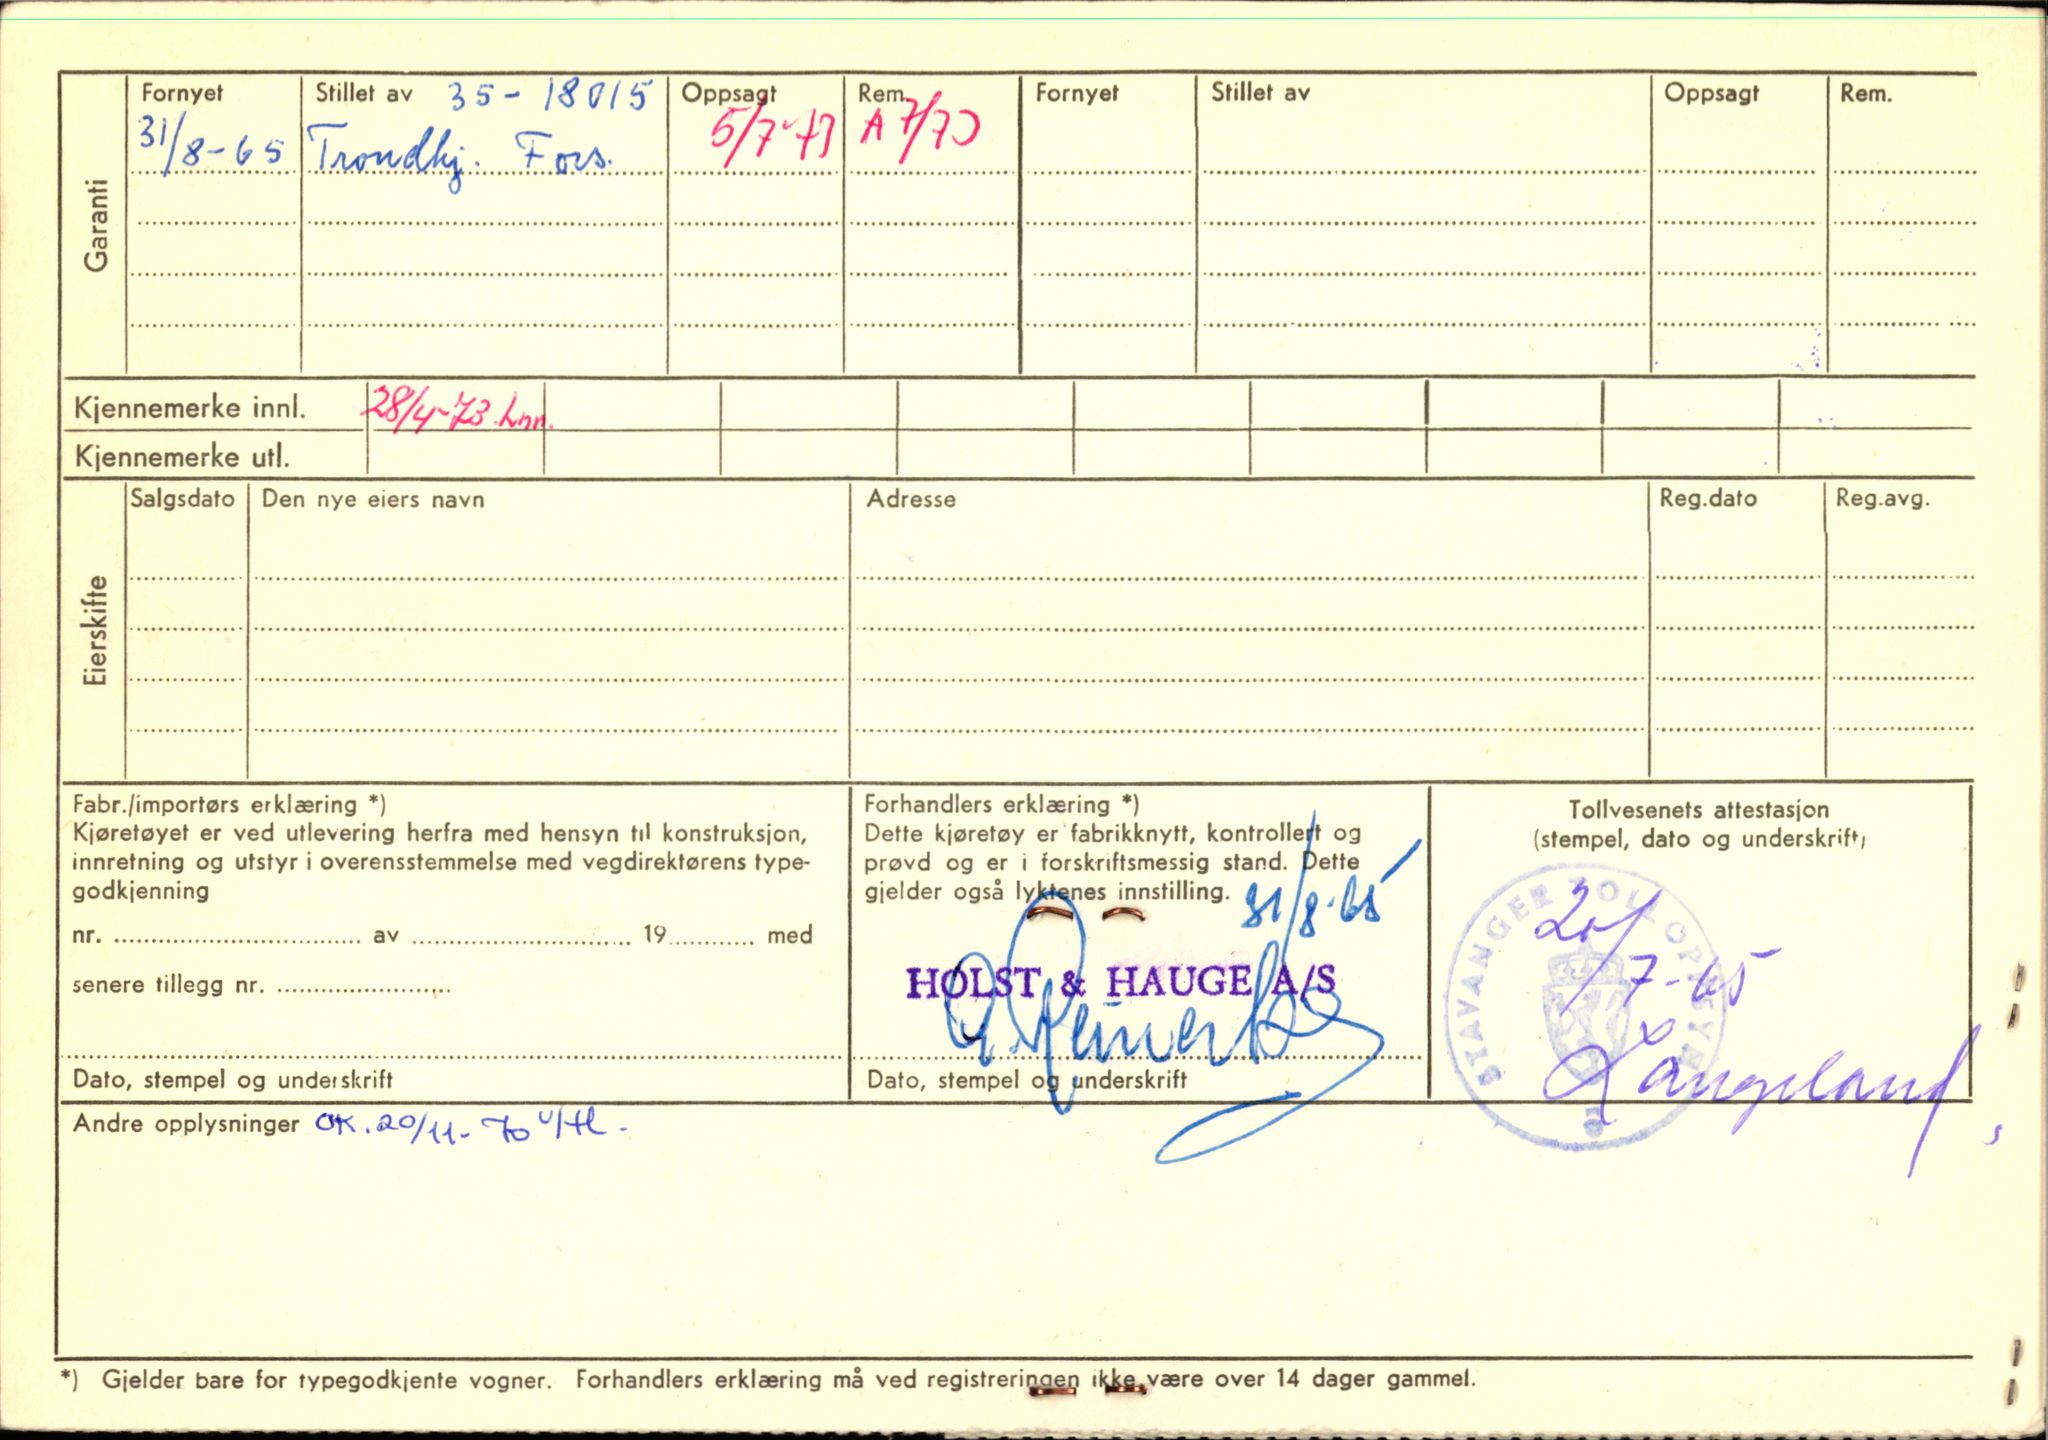 Garanti
Fornyet Stillet av 35-18015 Oppsagt Rem. Fornyet Stillet av Oppsagt Rem.
31/8-65 Trondhj. Fors. 5/7-73 A 7/73
Kjennemerke innl. 28/4-73.
Kjennemerke utl.
Eierskifte
Salgsdato Den nye eiers navn Adresse Reg.dato Reg.avg.
Fabr./importørs erklæring *)
Kjøretøyet er ved utlevering herfra med hensyn til konstruksjon,
innretning og utstyr i overensstemmelse med vegdirektørens type-
godkjenning
nr. av 19 med
senere tillegg nr.
Dato, stempel og underskrift
Forhandlers erklæring *)
Dette kjøretøy er fabrikknytt, kontrollert og
prøvd og er i forskriftsmessig stand. Dette
gjelder også lyktenes innstilling.
31/8-65
HOLST & HAUGE A/S
Dato, stempel og underskrift
Tollvesenets attestasjon
(stempel, dato og underskrift)
STAVANGER TOLLOPPSYN
20/7-65
Langeland
Andre opplysninger OK. 20/11-70
*) Gjelder bare for typegodkjente vogner. Forhandlers erklæring må ved registreringen ikke være over 14 dager gammel.